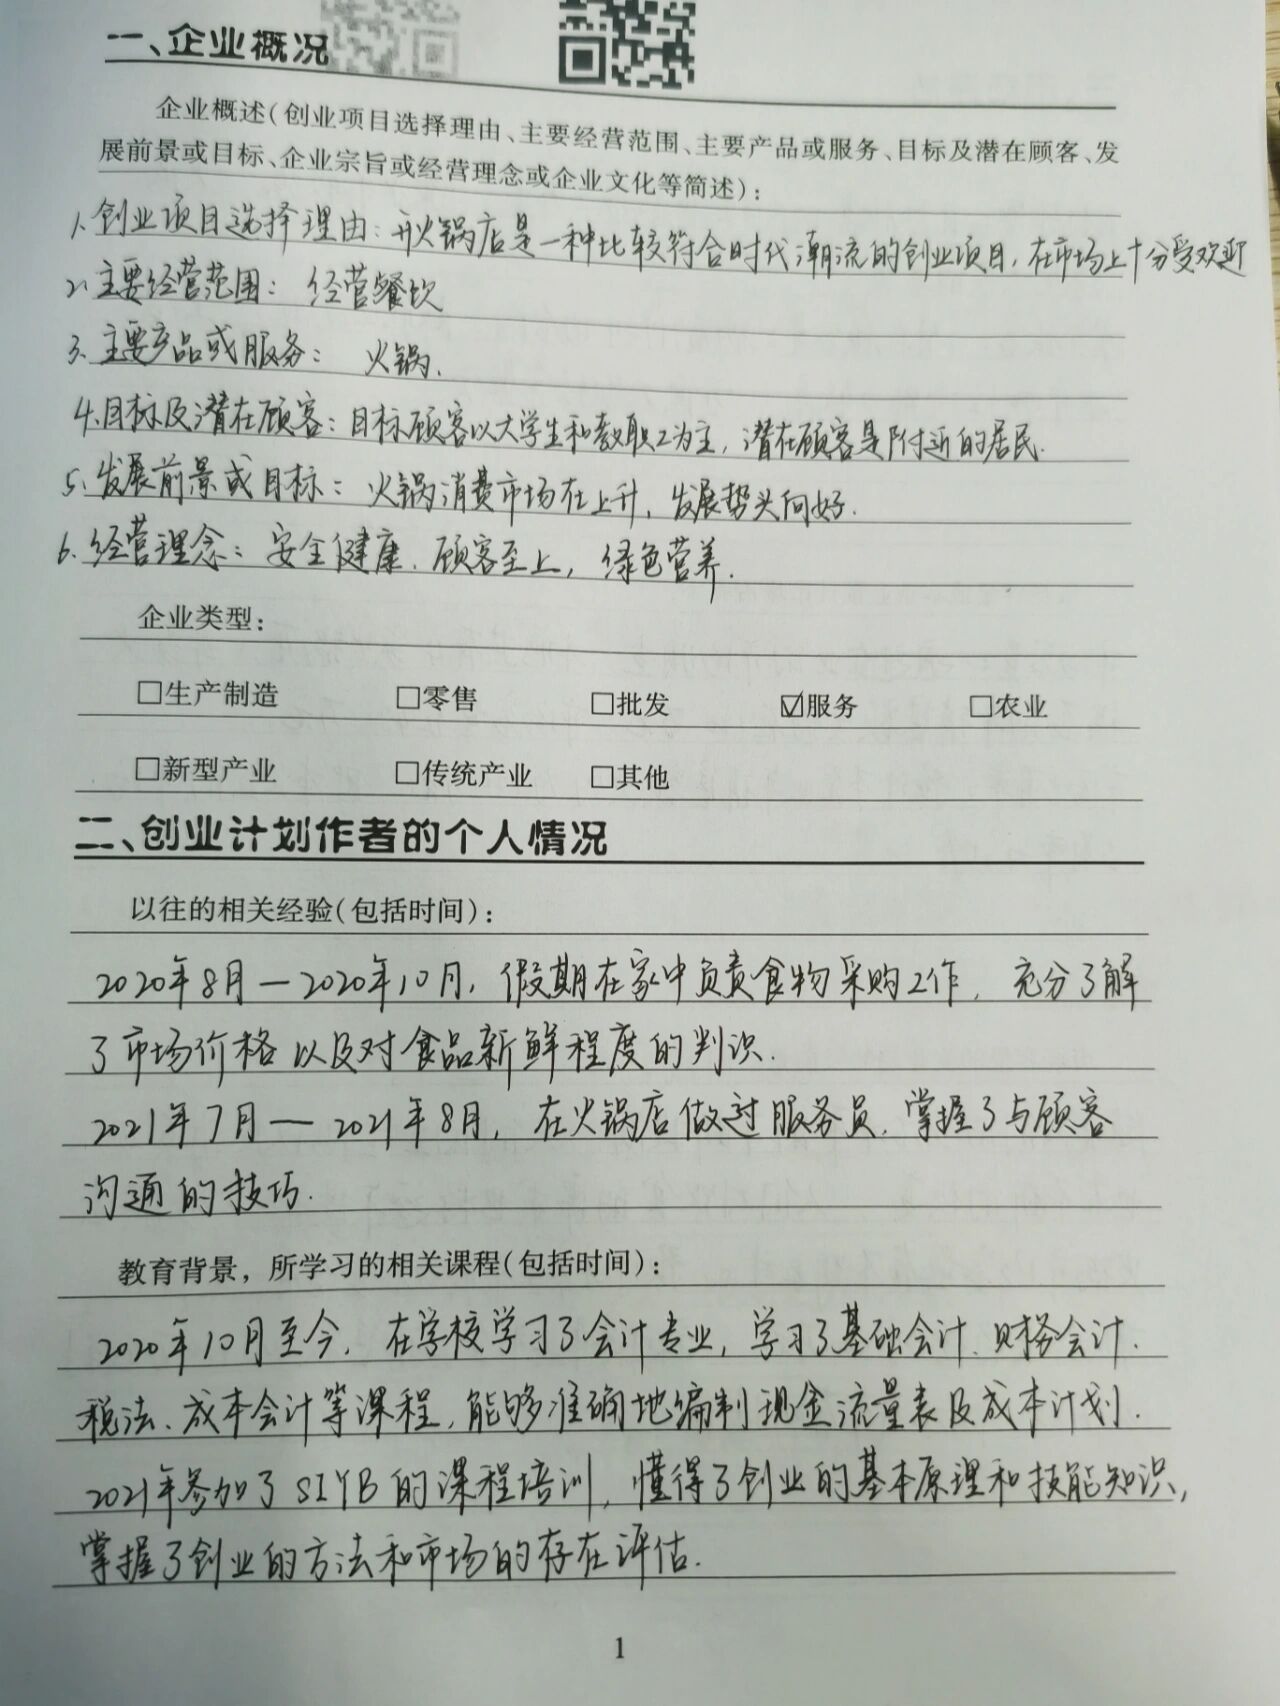 一、企业概况
企业概述(创业项目选择理由、主要经营范围、主要产品或服务、目标及潜在顾客、发
展前景或目标、企业宗旨或经营理念或企业文化等简述):
1.创业项目选择理由:开火锅店是一种比较符合时代潮流的创业项目,在市场上十分受欢迎
2.主要经营范围: 经营餐饮
3.主要产品或服务: 火锅.
4.目标及潜在顾客:目标顾客以大学生和教职工为主,潜在顾客是附近的居民.
5.发展前景或目标: 火锅消费市场在上升,发展势头向好.
6.经营理念: 安全健康.顾客至上,绿色营养.
企业类型:
□生产制造 □零售 □批发 ☑服务 □农业
□新型产业 □传统产业 □其他
二、创业计划作者的个人情况
以往的相关经验(包括时间):
2020年8月—2020年10月,假期在家中负责食物采购工作,充分了解
了市场价格以及对食品新鲜程度的判识.
2021年7月—2021年8月,在火锅店做过服务员.掌握了与顾客
沟通的技巧.
教育背景,所学习的相关课程(包括时间):
2020年10月至今,在学校学习了会计专业,学习了基础会计、财务会计.
税法、成本会计等课程,能够准确地编制现金流量表及成本计划.
2021年参加了SIYB的课程培训,懂得了创业的基本原理和技能知识,
掌握了创业的方法和市场的存在评估.
1